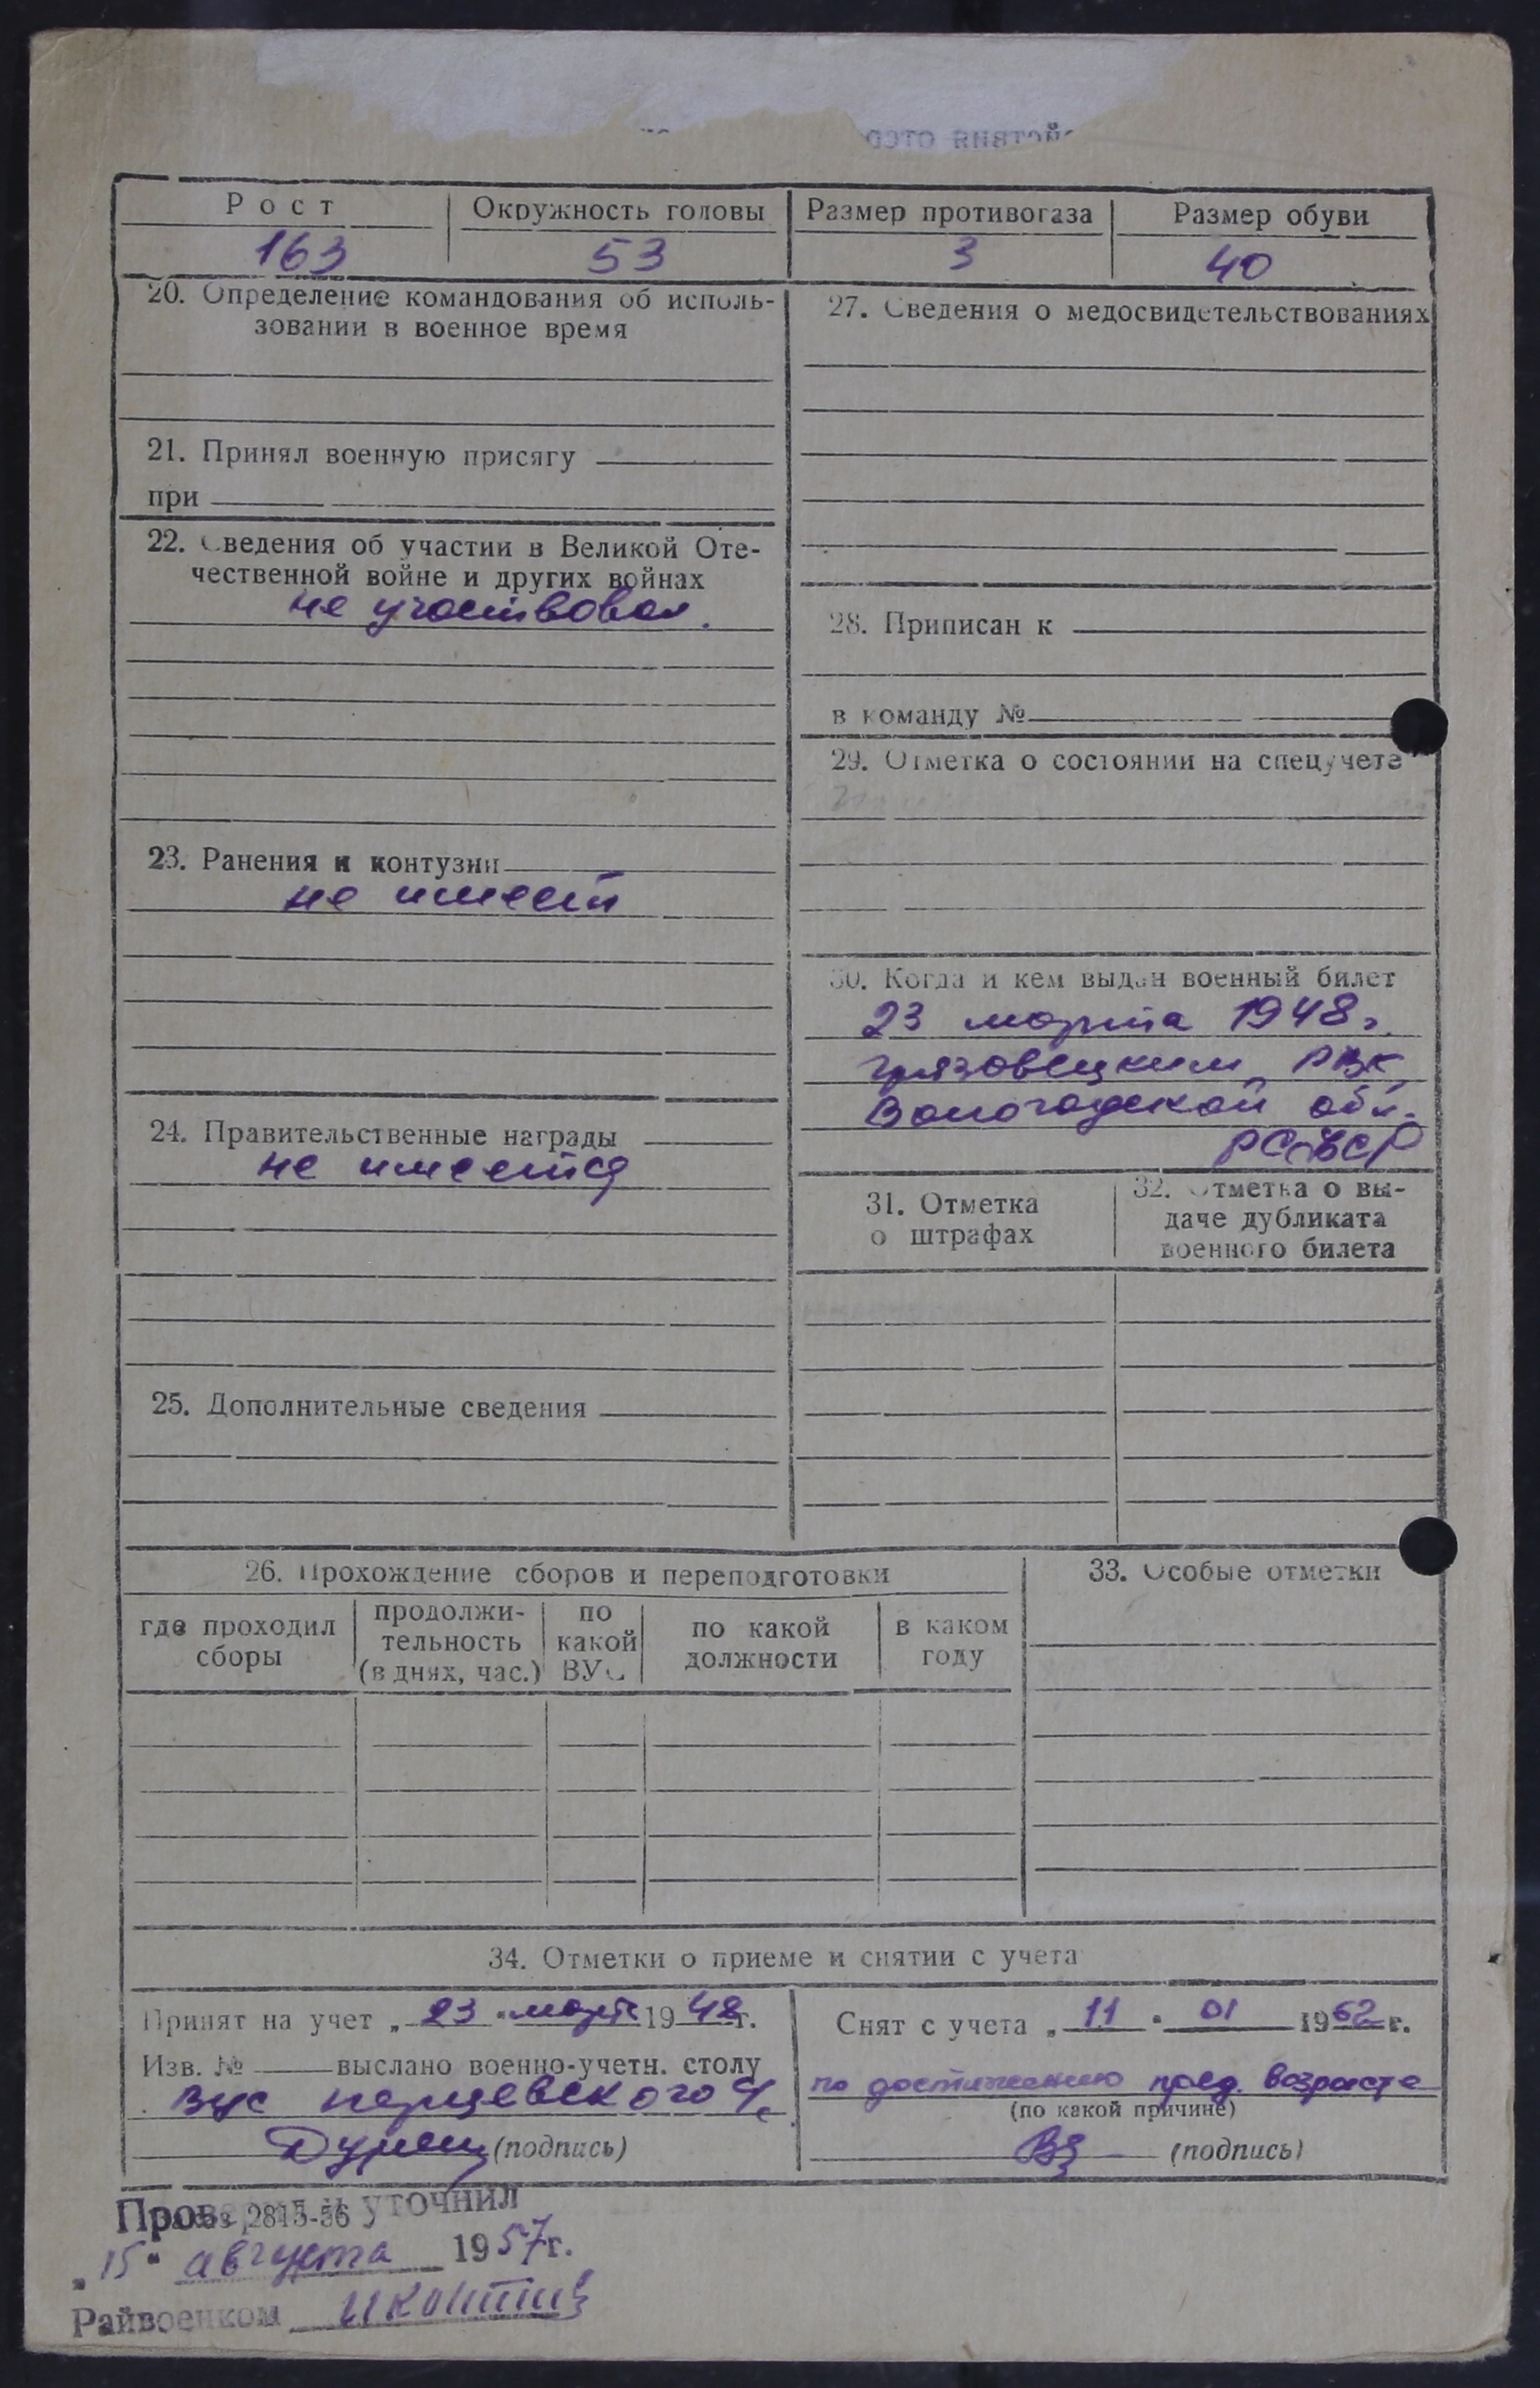 Рост Окружность головы Размер противогаза Размер обуви
163 53 3 40
20. Определение командования об исполь-
зовании в военное время
21. Принял военную присягу
при
22. Сведения об участии в Великой Оте-
чественной войне и других войнах
не участвовал.
23. Ранения и контузии
не имеет
24. Правительственные награды
не имеется
25. Дополнительные сведения
27. Сведения о медосвидетельствованиях
28. Приписан к
в команду №
29. Отметка о состоянии на спецучете
30. Когда и кем выдан военный билет
23 марта 1948 г.
Грязовецким РВК
Вологодской обл.
РСФСР
31. Отметка
о штрафах
32. Отметка о вы-
даче дубликата
военного билета
26. Прохождение сборов и переподготовки
где проходил
сборы
продолжи-
тельность
(в днях, час.)
по
какой
ВУС
по какой
должности
в каком
году
33. Особые отметки
34. Отметки о приеме и снятии с учета
Принят на учет „23" март 1948 г.
Изв. № выслано военно-учетн. столу
ВУС Перцевского
(подпись)
Снят с учета „11" 01 1962 г.
по достижению пред. возраста
(по какой причине)
(подпись)
Проверил и уточнил
2815-56
„15" августа 1957 г.
Райвоенком